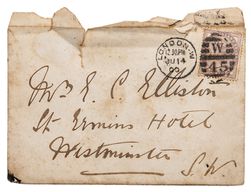 LONDON.W
12.30PM
JU 14
W
15
Mrs E. C. Elliston
St. Ermins Hotel
Westminster
S.W